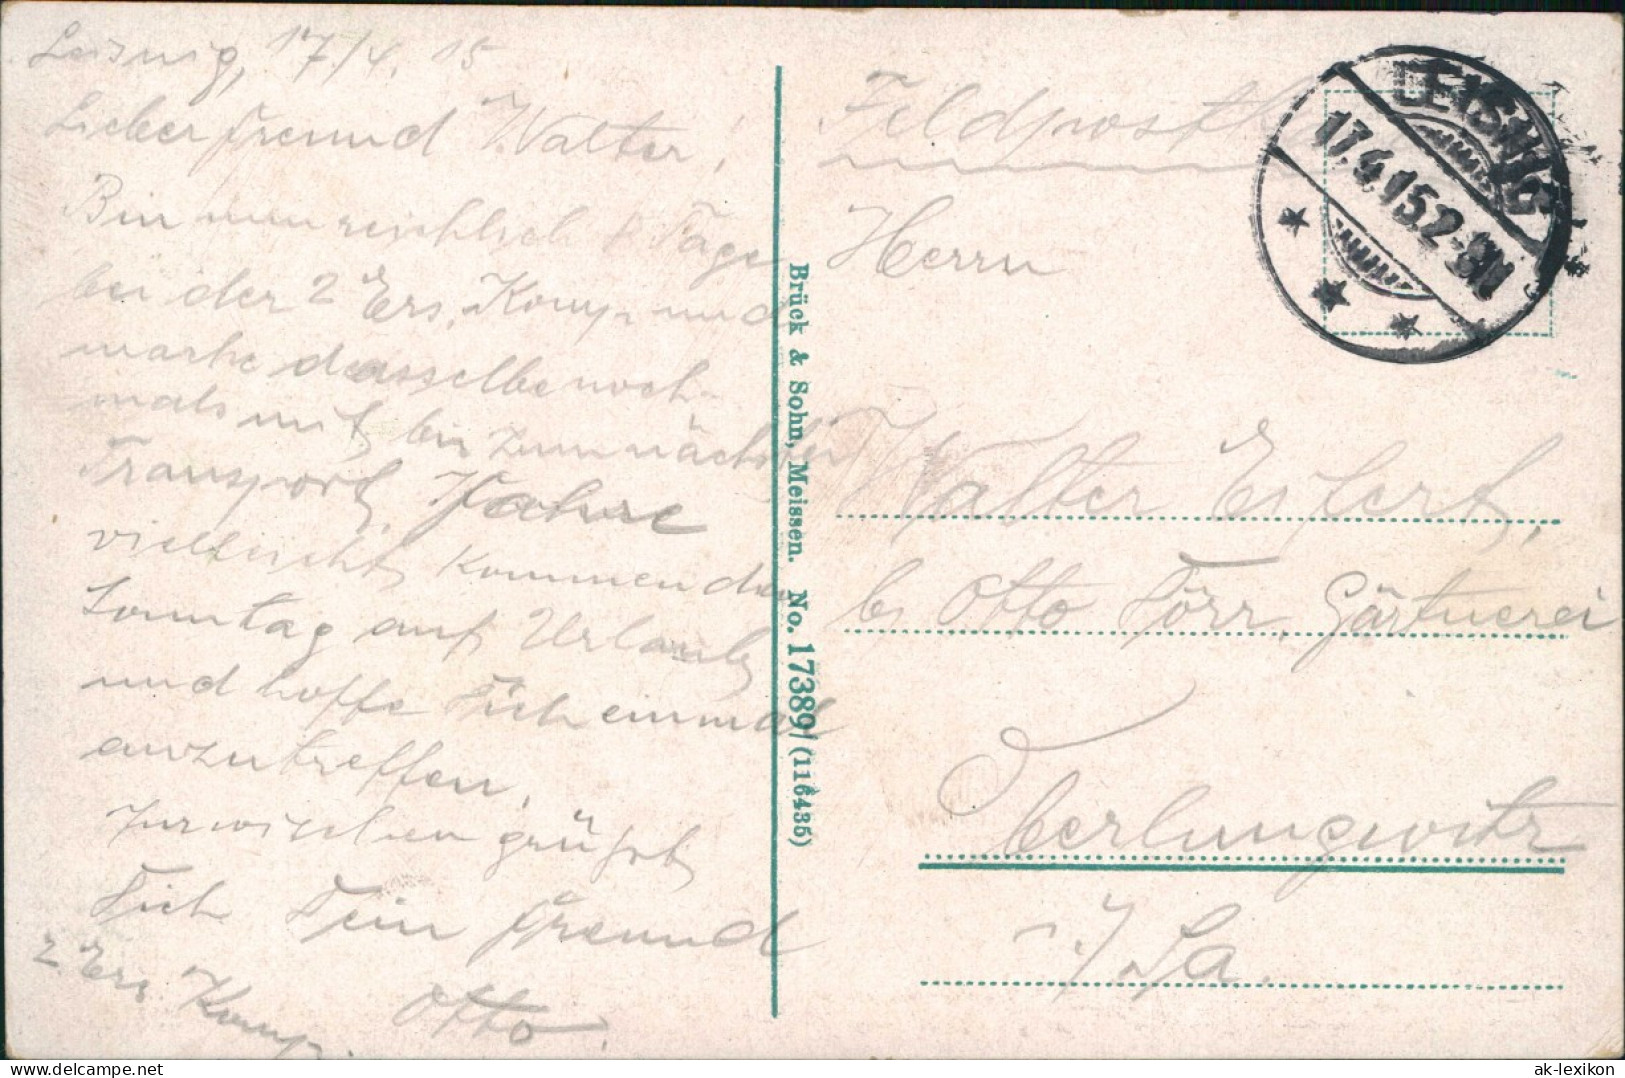 Leisnig, 17/4. 15
Lieber Freund Walter!
Bin nun reichlich 8 Tage
bei der 2 Ers. Komp. und
mache dasselbe noch-
mals mit bis zum nächsten
Transport. Fahre
vielleicht kommenden
Sonntag auf Urlaub
und hoffe Dich einmal
anzutreffen.
Inzwischen grüßt
Dich Dein Freund
Otto.
2. Ers. Komp.
Brück & Sohn, Meissen. No. 17389 (116435)
Feldpostk
LEISNIG
17.4.15.2-3N
Herrn
Walter Eifert,
b. Otto Dörr, Gärtnerei
Oberlungwitz
i/Sa.
oldthing.de
ak-lexikon